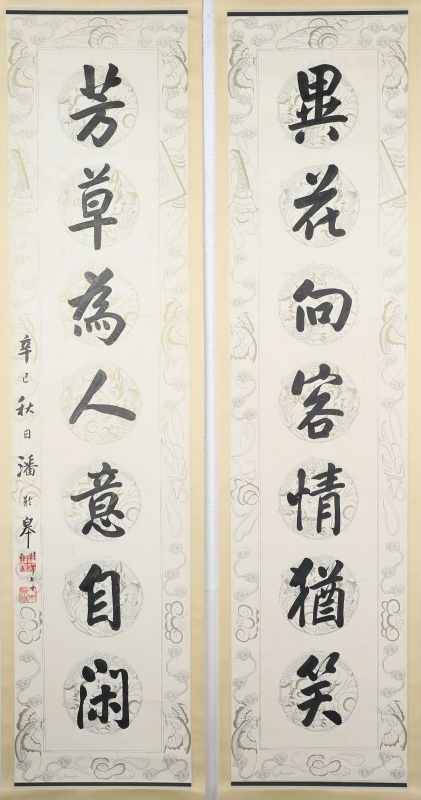 異花向客情猶笑
芳草為人意自閑
辛巳秋日潘齡皋